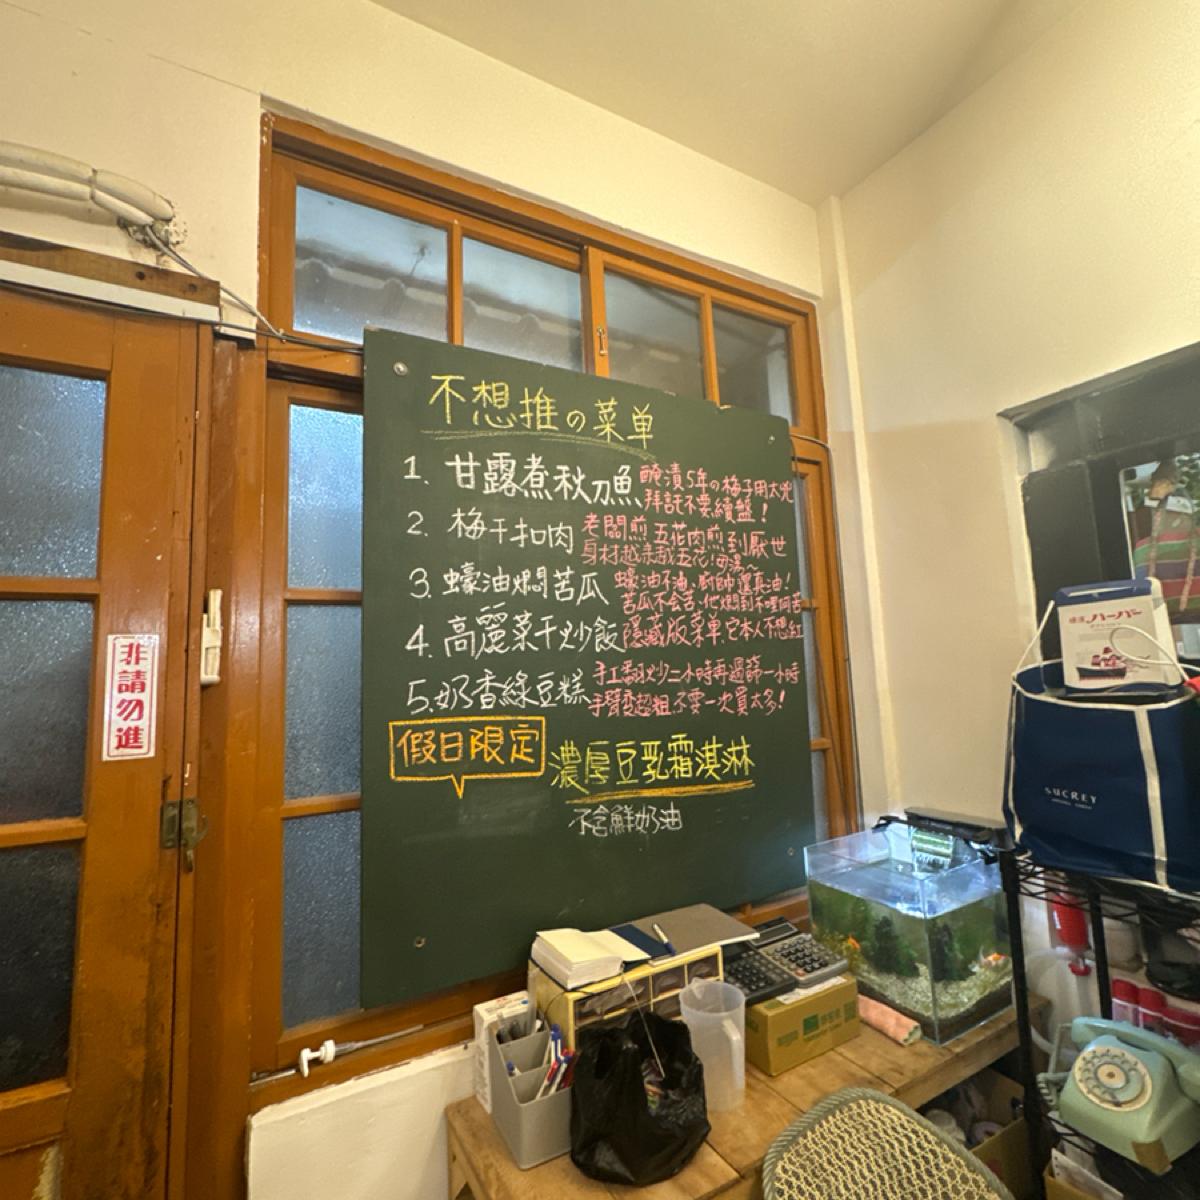 不想推の菜单
1. 甘露煮秋刀魚
醃漬5年の梅子用太兇
拜託不要續盤！
2. 梅干扣肉
老闆煎五花肉煎到厭世
身材越來越五花!母湯~
3. 蠔油燜苦瓜
蠔油不油、廚師還真油！
苦瓜不会苦、他燜到不哩何苦
4. 高麗菜干炒飯
隱藏版菜単,它本人不想紅
5. 奶香綠豆糕
手工翻炒二小時再過篩一小時
手臂變超粗不要一次買太多!
假日限定
濃厚豆乳霜淇淋
不含鮮奶油
非請勿進
ハーバー
SUCREY